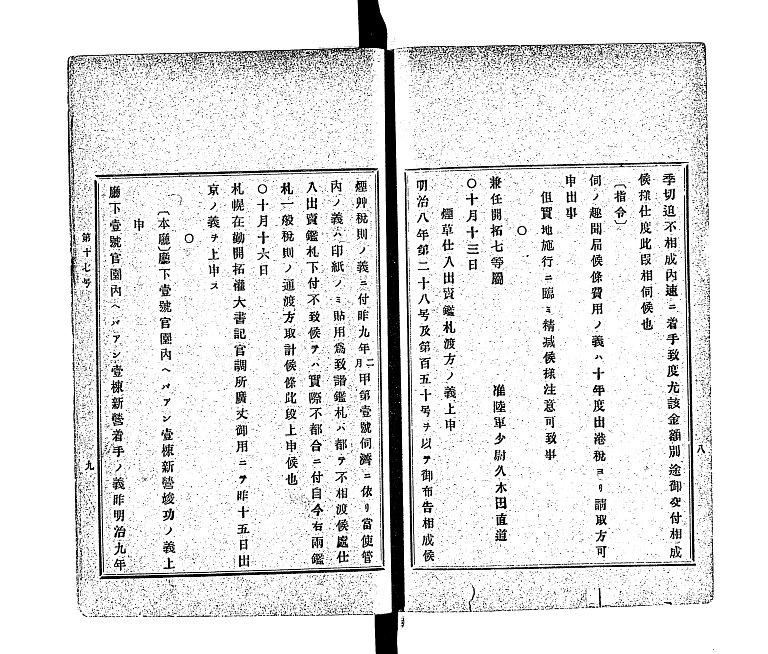 季切迫不相成內速ニ着手致度尤該金額別途御交付相成
候樣仕度此段相伺候也
〔指令〕
伺ノ趣聞屆候條費用ノ義ハ十年度出港稅ヨリ請取方可
申出事
但實地施行ニ臨ミ精减候樣注意可致事
○
兼任開拓七等屬　准陸軍少尉久木田直道
○十月十三日
煙草仕入出賣鑑札渡方ノ義上申
明治八年第二十八号及第百五十号ヲ以テ御布告相成候
八
煙艸稅則ノ義ニ付昨九年二月甲第壹號伺濟ニ依リ當使管
內ノ義ハ印紙ノミ貼用爲致諸鑑札ハ都テ不相渡候處仕
入出賣鑑札下付不致候テハ實際不都合ニ付自今右兩鑑
札一般稅則ノ通渡方取計候條此段上申候也
○十月十六日
札幌在勤開拓權大書記官調所廣丈御用ニテ昨十五日出
京ノ義ヲ上申ス
○
〔本廳〕廳下壹號官園內ヘバアン壹棟新營竣功ノ義上
申
廳下壹號官園內ヘバアン壹棟新營着手ノ義昨明治九年
第十七号
九